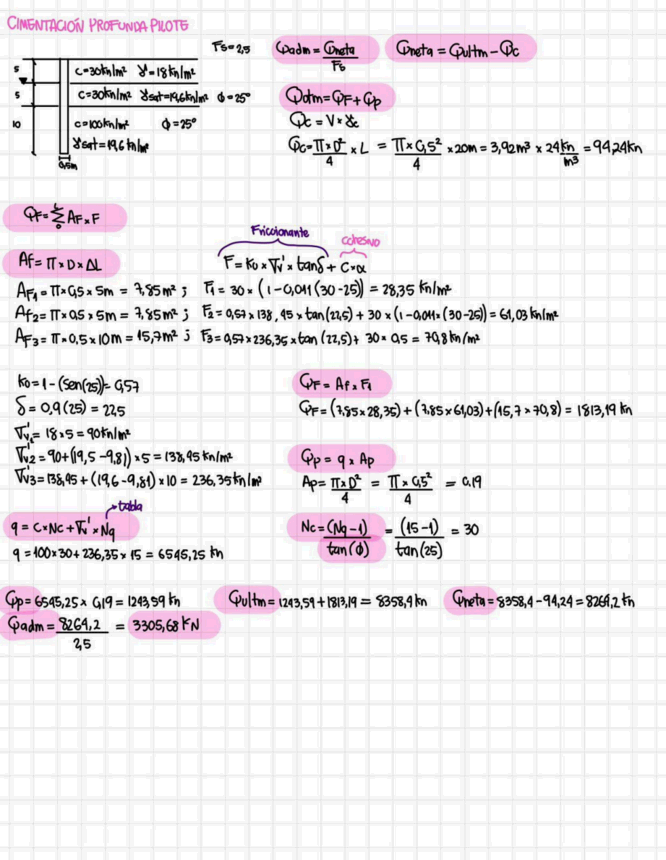 CIMENTACIÓN PROFUNDA PILOTE
Fs=2,5
Qadm = Qneta / Fs
Qneta = Qultm - Qc
5 c=30kn/m² γ=18kn/m²
5 c=30kn/m² γsat=19,6kn/m² ϕ=25°
10 c=100kn/m² ϕ=25°
γsat=19,6 kn/m²
0,5m
Qotm = QF + Qp
Qc = V × γc
Qc = π×D²/4 × L = π×0,5²/4 × 20m = 3,92m³ × 24kn/m³ = 94,24kn
QF = Σ AF × F
0
Friccionante
cohesivo
Af = π × D × ΔL
F = Ko × σv' × tanδ + C×α
AF1 = π×0,5 × 5m = 7,85m² ; F1 = 30 × (1-0,011(30-25)) = 28,35 kn/m²
AF2 = π×0,5 × 5m = 7,85m² ; F2 = 0,57×138,95×tan(22,5) + 30×(1-0,011×(30-25)) = 61,03 kn/m²
AF3 = π×0.5 × 10m = 15,7m² ; F3 = 0,57×236,35×tan(22,5) + 30×0,5 = 70,8 kn/m²
Ko = 1-(sen(25)) = 0,57
δ = 0,9(25) = 22,5
σv'1 = 18×5 = 90kn/m²
σv'2 = 90+(19,5-9,81)×5 = 138,95 kn/m²
σv'3 = 138,95+(19,6-9,81)×10 = 236,35kn/m²
QF = Af × F1
QF = (7,85×28,35)+(7,85×61,03)+(15,7×70,8) = 1813,19 kn
Qp = q × Ap
Ap = π×D²/4 = π×0,5²/4 = 0,19
tabla
q = C×Nc + σv' × Nq
q = 100×30 + 236,35×15 = 6545,25 kn
Nc = (Nq-1)/tan(ϕ) = (15-1)/tan(25) = 30
Qp = 6545,25 × 0,19 = 1243,59 kn
Qultm = 1243,59 + 1813,19 = 8358,4 kn
Qneta = 8358,4 - 94,24 = 8264,2 kn
Qadm = 8264,2 / 2,5 = 3305,68 KN